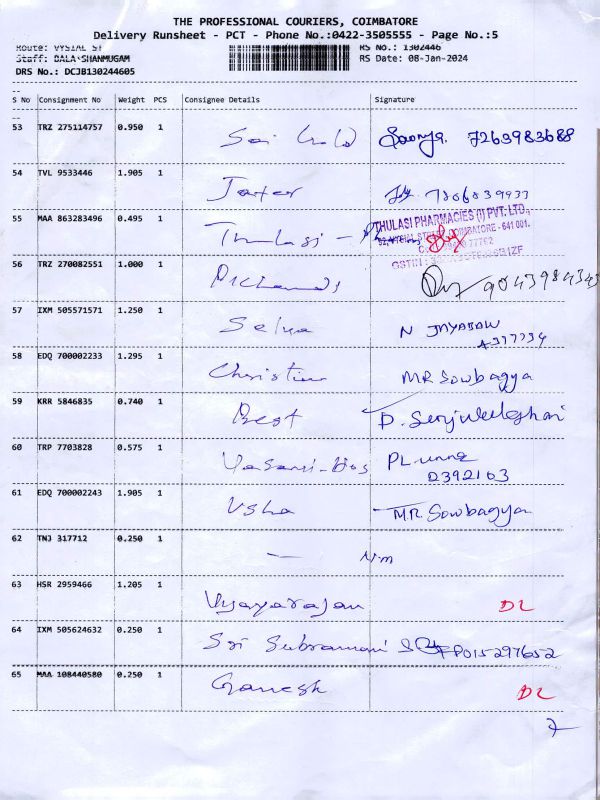 THE PROFESSIONAL COURIERS, COIMBATORE
Delivery Runsheet - PCT - Phone No.:0422-3505555 - Page No.:5
Route: VYSIAL ST RS No.: 1302446
Staff: BALA SHANMUGAM RS Date: 08-Jan-2024
DRS No.: DCJB130244605
S No Consignment No Weight PCS Consignee Details Signature
53 TRZ 275114757 0.950 1 Sai 7263983688
54 TVL 9533446 1.905 1 7806839933
55 MAA 863283496 0.495 1 Thulasi -
THULASI PHARMACIES (I) PVT. LTD.,
COIMBATORE - 641 001.
GSTIN :
56 TRZ 270082551 1.000 1
57 IXM 505571571 1.250 1 Selva N JAYABAL
58 EDQ 700002233 1.295 1 Christin MR Sowbagya
59 KRR 5846835 0.740 1 Best D.
60 TRP 7703828 0.575 1
61 EDQ 700002243 1.905 1 Usha MR. Sowbagya
62 TNJ 317712 0.250 1 —
63 HSR 2959466 1.205 1 Vijayarajan DL
64 IXM 505624632 0.250 1 Sri Subramani
65 MAA 108440580 0.250 1 Ganesh DL
7